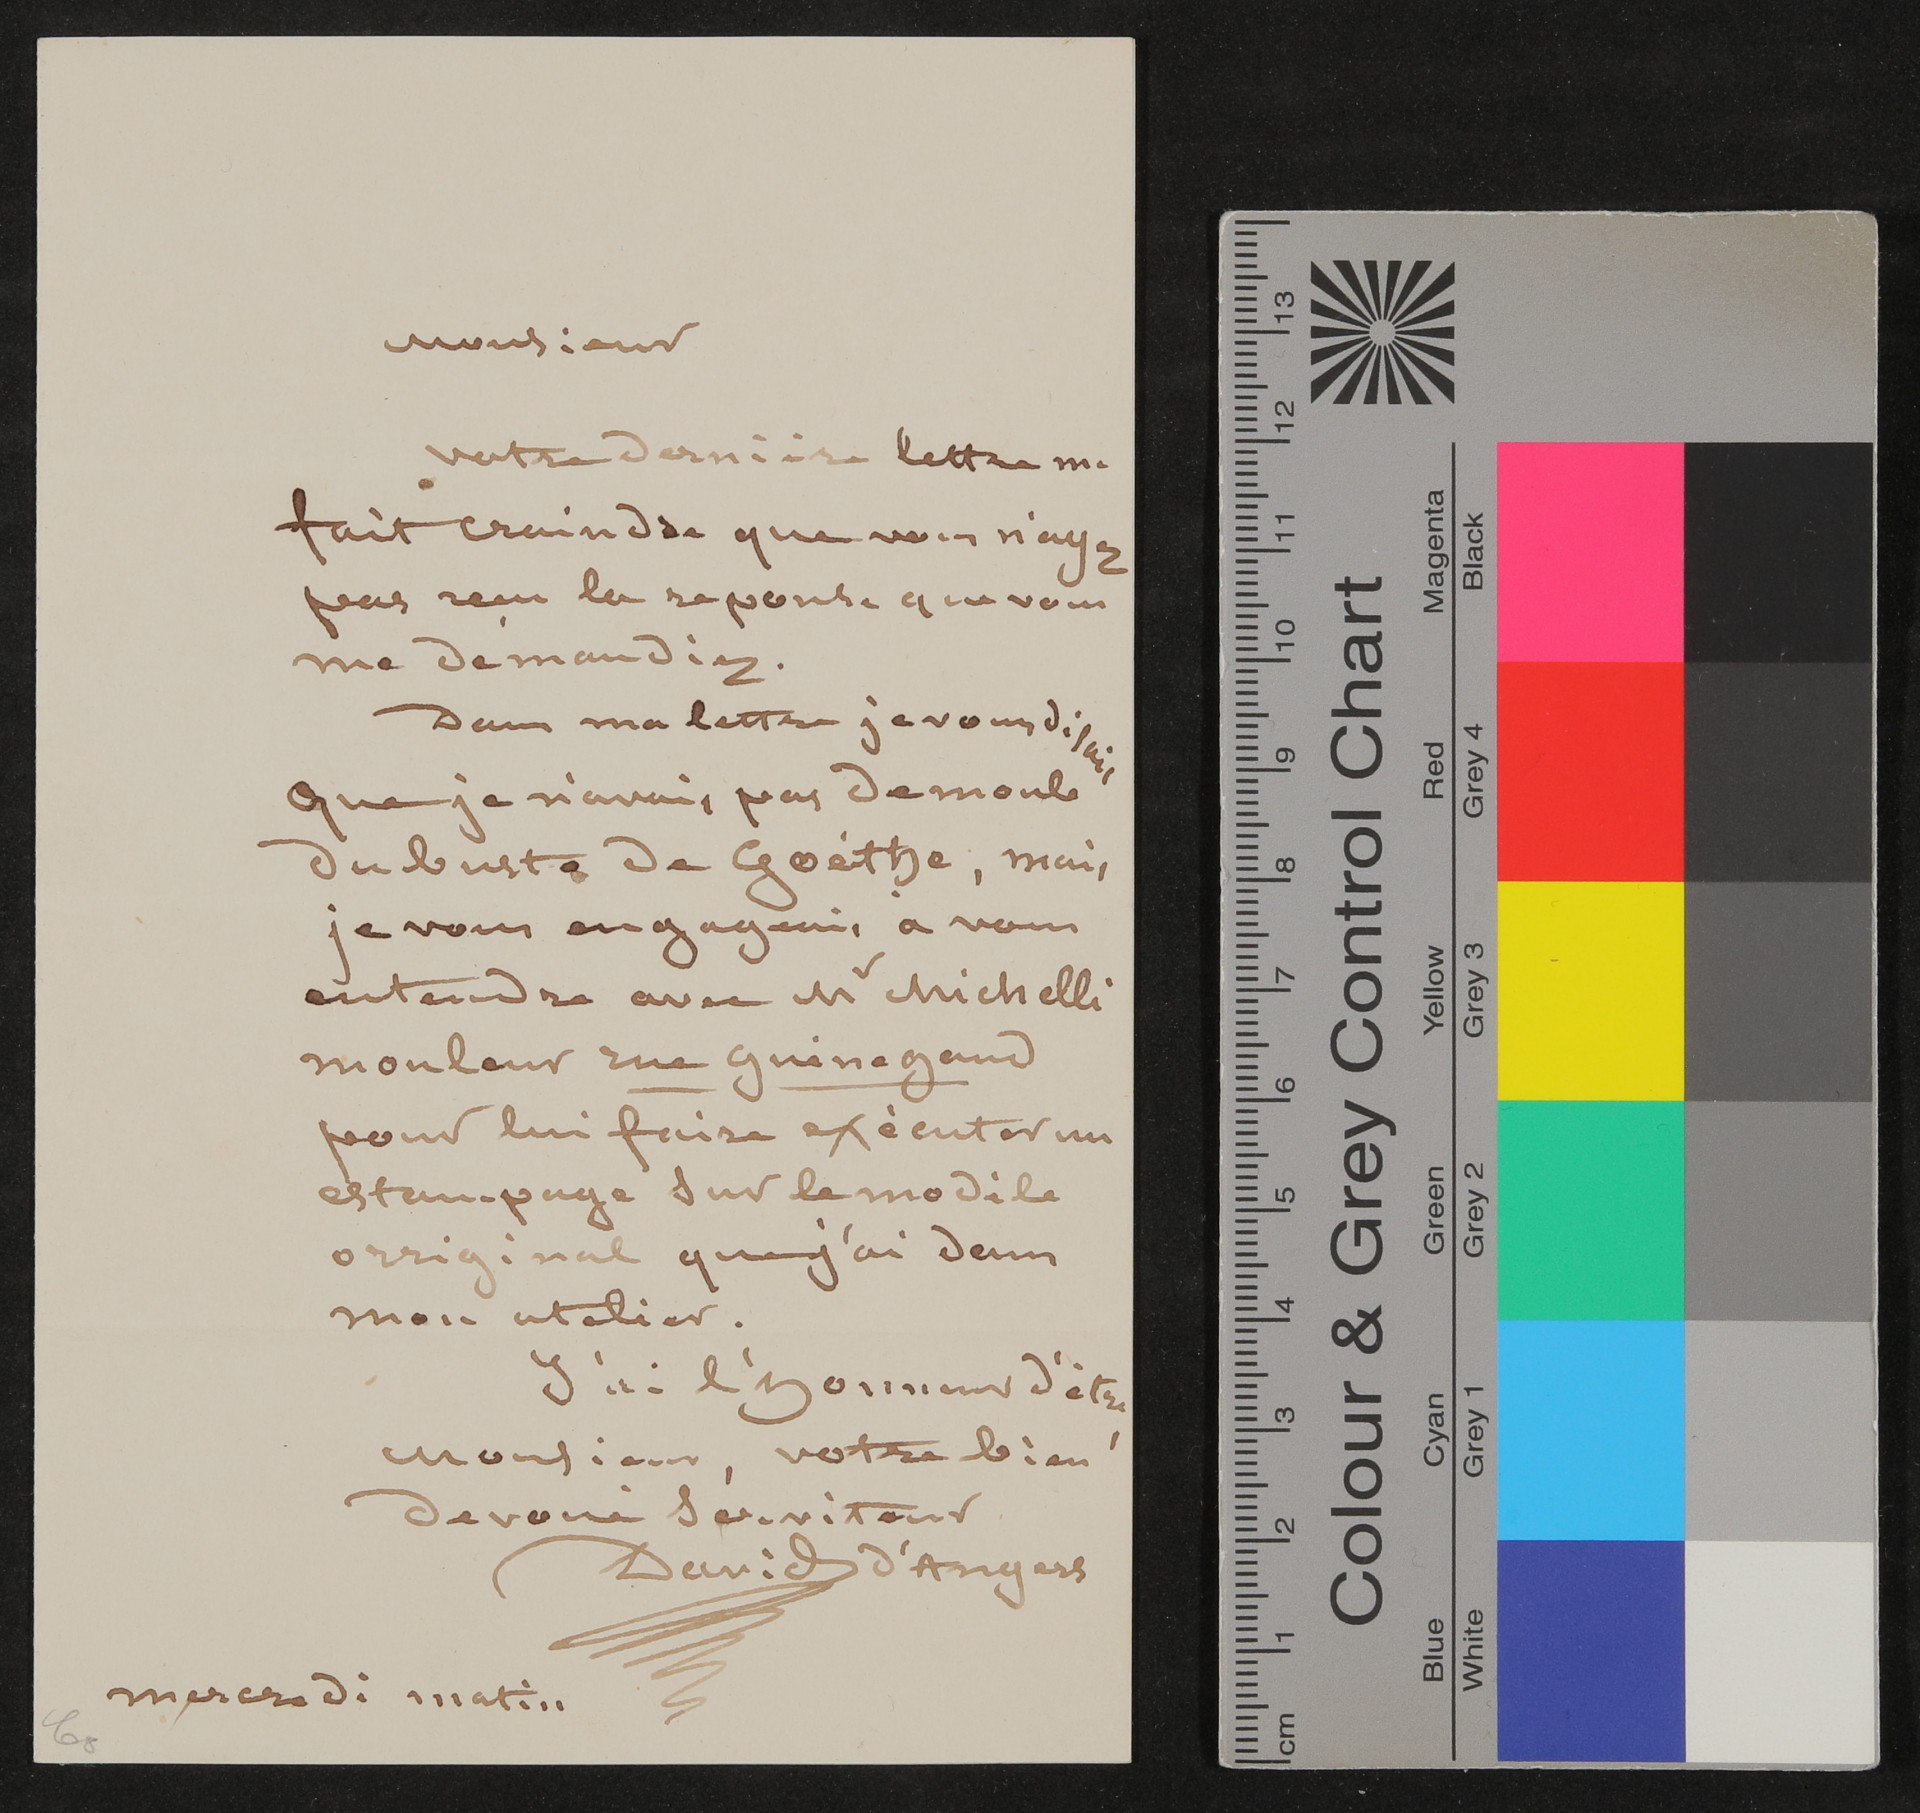 Monsieur
votre dernière lettre me
fait craindre que vous n'ayez
pas reçu la reponse que vous
me demandiez.
Dans ma lettre je vous disais
que je n'avais pas de moule
du buste de Goéthe, mais
je vous engageais à vous
entendre avec Mr Michelli
mouleur rue Guénegaud
pour lui faire exécuter un
estampage sur le modèle
orriginal que j'ai dans
mon atelier.
J'ai l'honneur d'être
Monsieur, votre bien
devoué serviteur
David d'Angers
mercredi matin
Colour & Grey Control Chart
Blue Cyan Green Yellow Red Magenta
White Grey 1 Grey 2 Grey 3 Grey 4 Black
cm 1 2 3 4 5 6 7 8 9 10 11 12 13